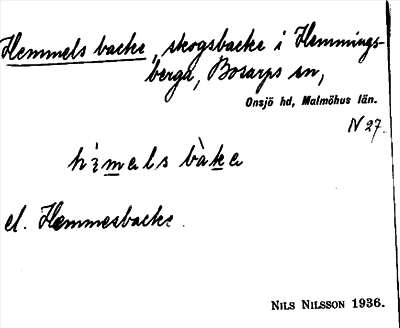 Hemmels backe, skogsbacke i Hemmings-
berga, Bosarps sn,
Onsjö hd, Malmöhus län.
N 27.
hìmals bàka
el. Hemmesbacke.
NILS NILSSON 1936.